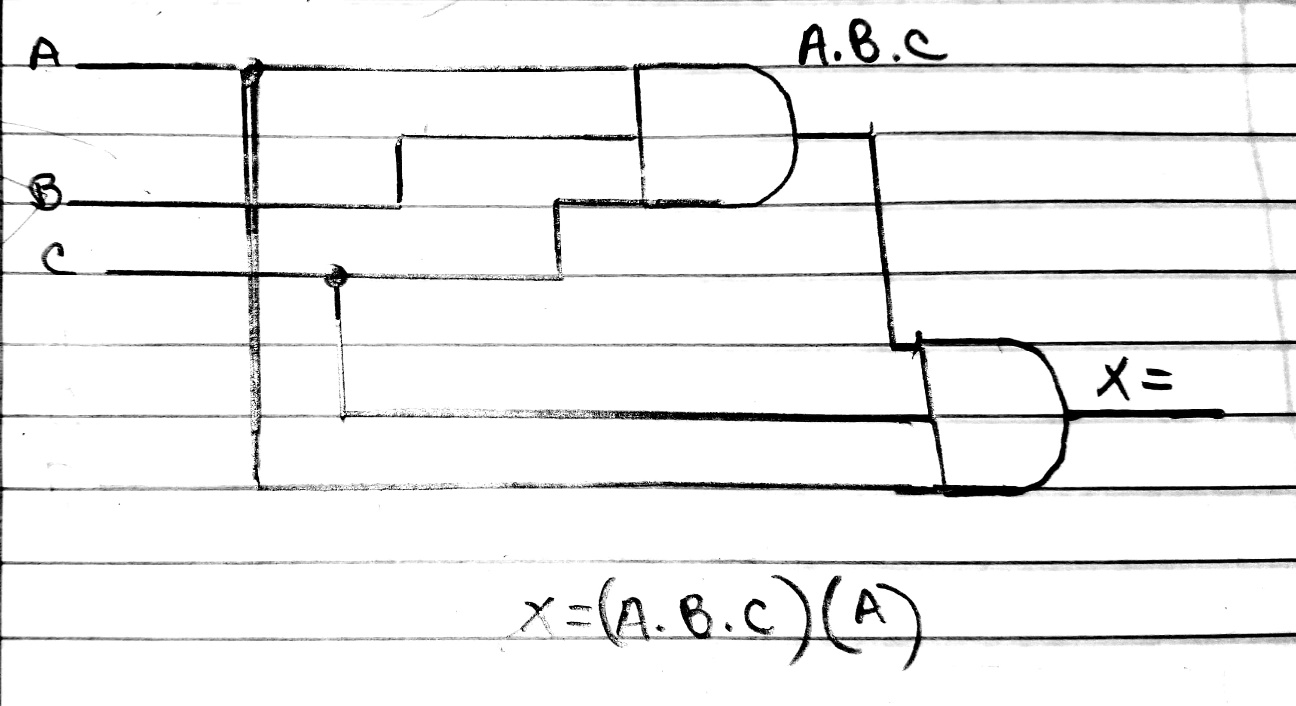 A
A.B.C
B
C
X=
X=(A.B.C)(A)